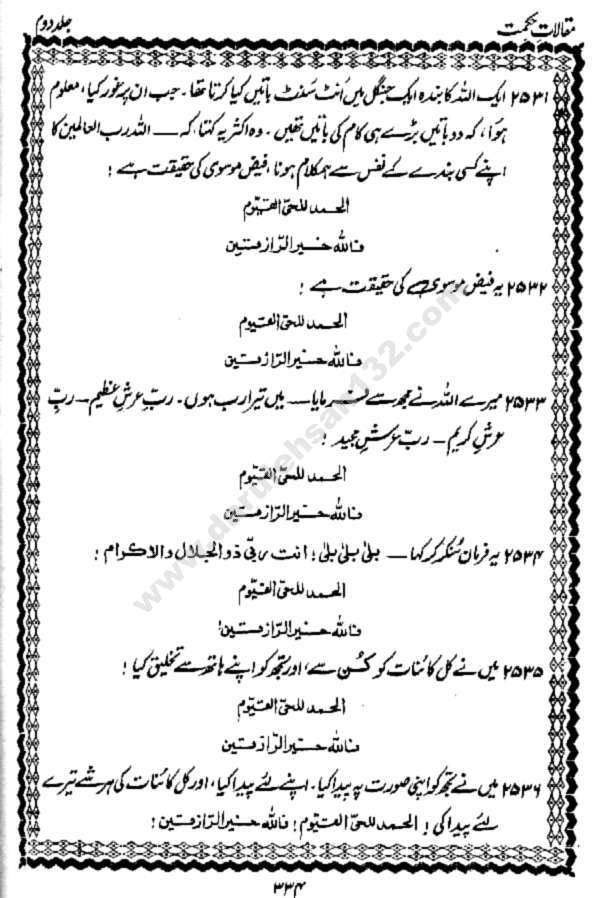 مقالات حکمت
جلد دوم
۲۵۳۱ ایک اللہ کا بندہ ایک جنگل میں اُنٹ سَنٹ باتیں کیا کرتا تھا۔ جب ان پر غور کیا، معلوم
ہوا، کہ وہ باتیں بڑے ہی کام کی باتیں تھیں۔ وہ اکثر یہ کہتا، کہ — اللہ رب العالمین کا
اپنے کسی بندے کے نفس سے ہمکلام ہونا، فیض موسوی کی حقیقت ہے!
الحمد للحیّ القیّوم
فاللہ خیر الرّازقین
۲۵۳۲ یہ فیض موسوی کی حقیقت ہے!
الحمد للحیّ القیوم
فاللہ خیر الرّازقین
۲۵۳۳ میرے اللہ نے مجھ سے فرمایا — میں تیرا رب ہوں۔ ربِّ عرشِ عظیم — ربِّ
عرشِ کریم — ربِّ عرشِ مجید!
الحمد للحیّ القیّوم
فاللہ خیر الرّازقین
۲۵۳۴ یہ فرمان سُنکر کر کہا — بلیٰ بلیٰ بلیٰ! انت ربّی ذوالجلال والاکرام!
الحمد للحیّ القیّوم
فاللہ خیر الرّازقین!
۲۵۳۵ میں نے کل کائنات کو کُن سے، اور تجھ کو اپنے ہاتھ سے تخلیق کیا!
الحمد للحیّ القیّوم
فاللہ خیر الرّازقین
۲۵۳۶ میں نے تجھ کو اپنی صورت پہ پیدا کیا۔ اپنے لئے پیدا کیا، اور کل کائنات کی ہر شے تیرے
لئے پیدا کی! الحمد للحیّ القیّوم! فاللہ خیر الرّازقین!
۳۳۴
www.darulehsan132.com